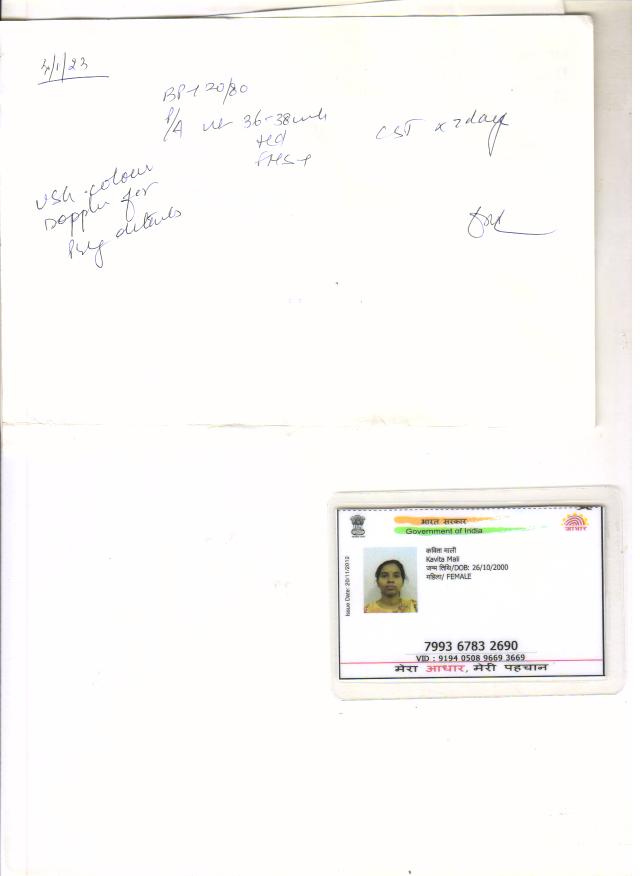 3/1/23
BP-120/80
P/A ut 36-38wk
FHS+
CST x 7 days
USG colour
Doppler for
Preg details
भारत सरकार
Government of India
आधार
Issue Date: 20/11/2012
कविता माली
Kavita Mali
जन्म तिथि/DOB: 26/10/2000
महिला/ FEMALE
7993 6783 2690
VID : 9194 0508 9669 3669
मेरा आधार, मेरी पहचान